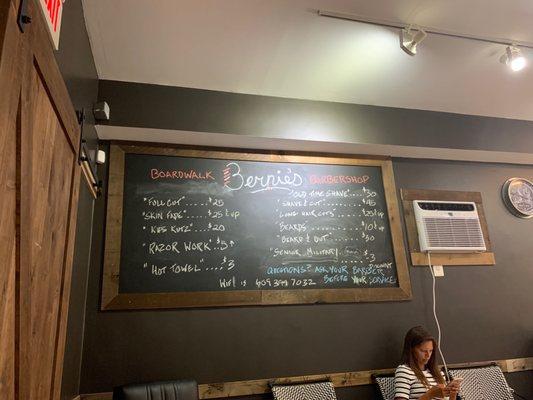 EXIT
BOARDWALK Bernie's BARBERSHOP
"FULL CUT" $25
"SKIN FADE" ...$25 & up
"KIDS KUTZ" $20
"RAZOR WORK ..$5
"HOT TOWEL"....$3
"OLD TIME SHAVE" $30
"SHAVE & CUT" $45
"LONG HAIR CUTS" $25 & up
"BEARDS ......$10 & up
"BEARD & CUT" ..$30
"SENIOR MILITARY
$3
QUESTIONS? ASK YOUR BARBER
BEFORE YOUR SERVICE
WIFI IS 609 399 7032